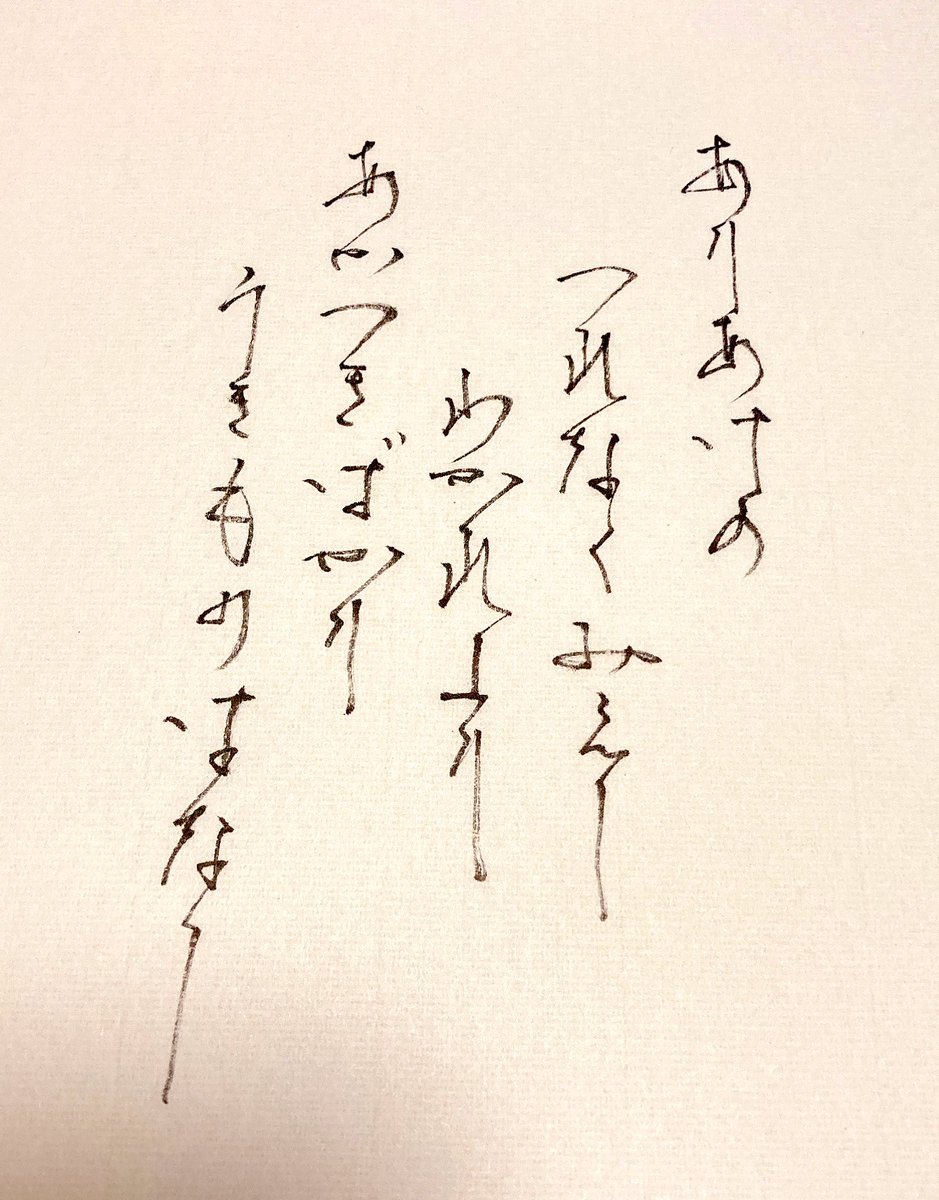 ありあけの
つれなくみえし
わかれより
あかつきばかり
うきものはなし